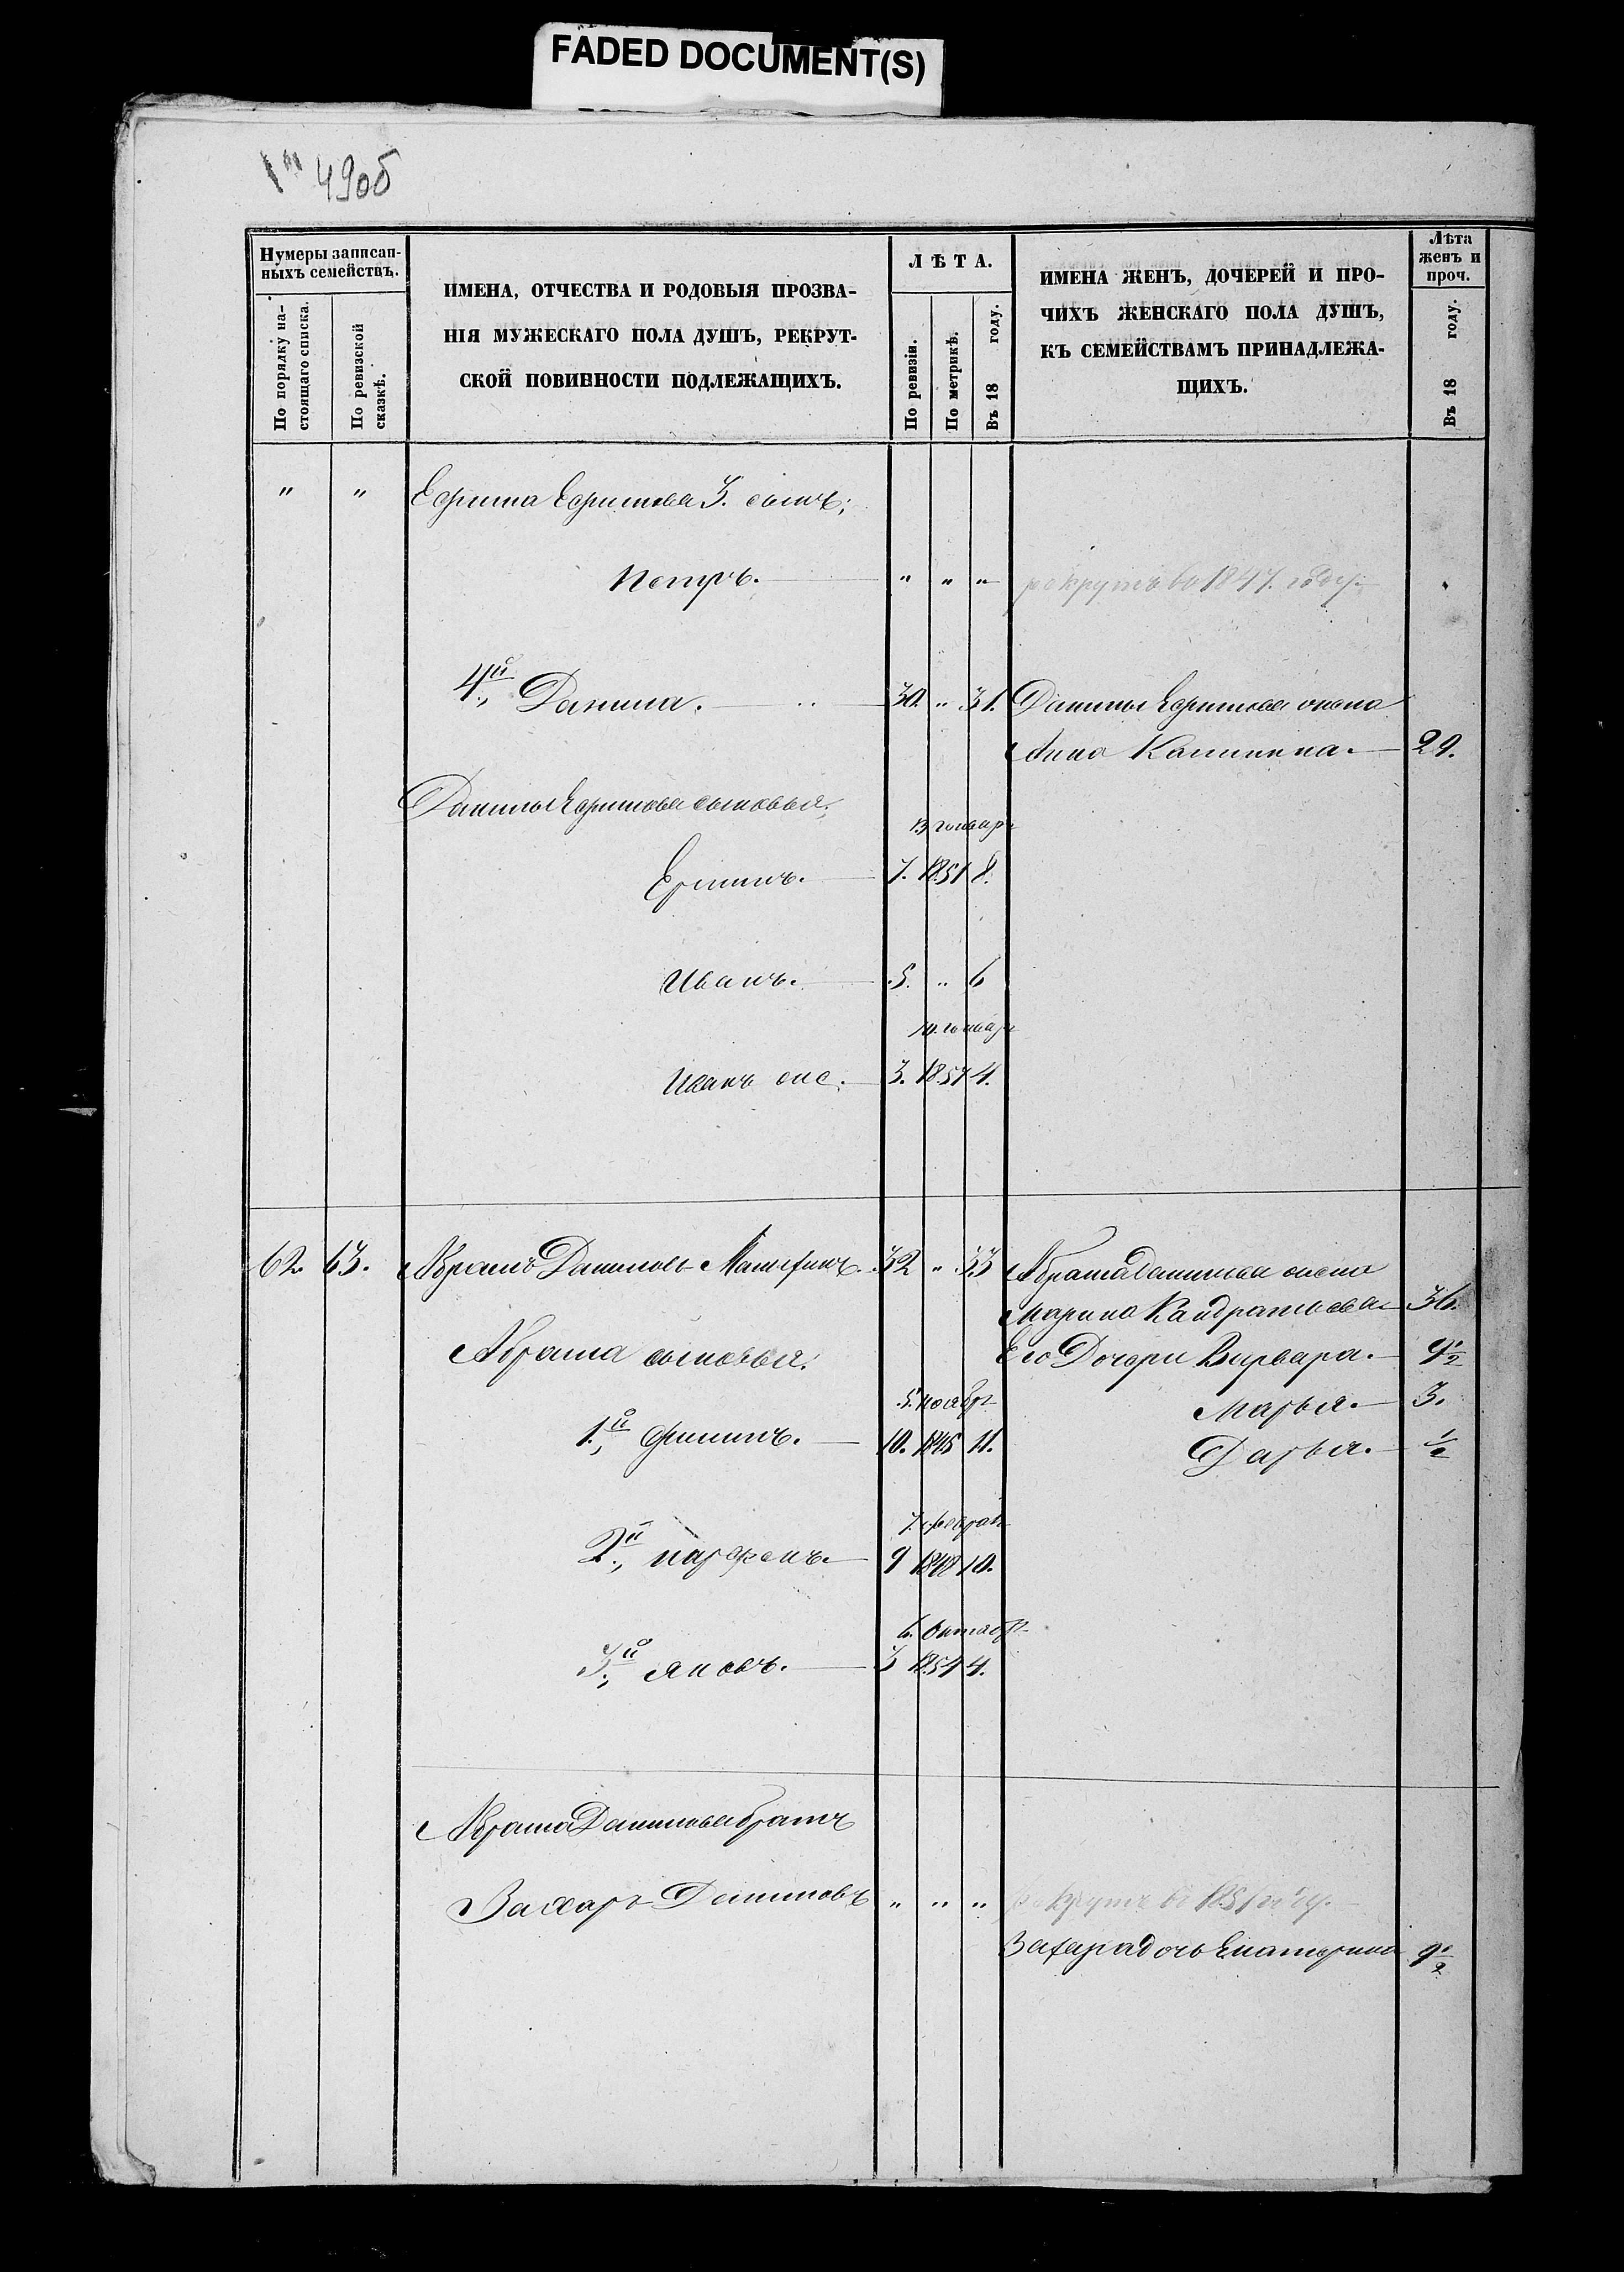 FADED DOCUMENT(S)
490б
Нумеры записан-
ныхъ семействъ.
По порядку на-
стоящаго списка.
По ревизской
сказкѣ.
ИМЕНА, ОТЧЕСТВА И РОДОВЫЯ ПРОЗВА-
НІЯ МУЖЕСКАГО ПОЛА ДУШЪ, РЕКРУТ-
СКОЙ ПОВИННОСТИ ПОДЛЕЖАЩИХЪ.
ЛѢТА.
По ревизіи.
По метрикѣ.
Въ 18 году.
ИМЕНА ЖЕНЪ, ДОЧЕРЕЙ И ПРО-
ЧИХЪ ЖЕНСКАГО ПОЛА ДУШЪ,
КЪ СЕМЕЙСТВАМЪ ПРИНАДЛЕЖА-
ЩИХЪ.
Лѣта
женъ и
проч.
Въ 18 году.
" " Ефима Ефимова 3. сынъ;
Петръ. " " " рекрутъ во 1847. году.
4й., Данила. 30. " 31. Данилы Ефимова жена
Анна Калинина. 29.
Данилы Ефимова сыновья;
13 генвар
7. 1851 8.
Иванъ. 5. " 6
10. генвар
Иванъ онъ же. 3. 1854 4.
62. 63. Абрамъ Даниловъ 32 " 33 Абрама Данилова жена
Марина Кандратьева 36.
Абрама сыновья: Его Дочери Варвара. 9 1/2
5. ноября Марья. 3.
1.й, Филипъ. 10. 1846 11. Дарья. 1/2
7. феврал
2.й, парфенъ. 9 1848 10.
6. октябр
3.й, яковъ. 3 1854 4.
Абрама Данилова братъ
Захаръ Даниловъ " " " рекрутъ во 1851 году.
Захара дочь Екатерина 9 1/2